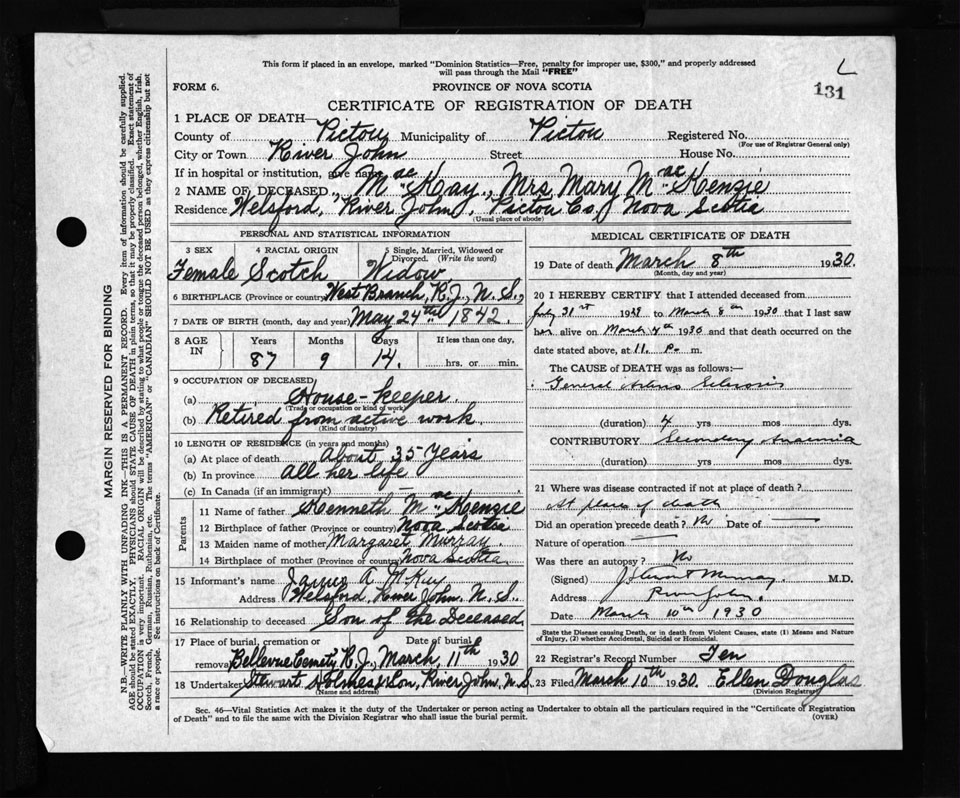 This form if placed in an envelope, marked "Dominion Statistics—Free, penalty for improper use, $300," and properly addressed
will pass through the Mail "FREE"
L
131
FORM 6.
PROVINCE OF NOVA SCOTIA
CERTIFICATE OF REGISTRATION OF DEATH
1 PLACE OF DEATH—
County of Pictou Municipality of Pictou Registered No.
(For use of Registrar General only)
City or Town River John Street House No.
If in hospital or institution, give name
2 NAME OF DECEASED Mac Kay, Mrs Mary Mac Kenzie
Residence Welsford, River John, Pictou Co, Nova Scotia
(Usual place of abode)
PERSONAL AND STATISTICAL INFORMATION
3 SEX 4 RACIAL ORIGIN 5 Single, Married, Widowed or Divorced. (Write the word)
Female Scotch Widow
6 BIRTHPLACE (Province or country) West Branch, R.J., N.S.,
7 DATE OF BIRTH (month, day and year) May 24th 1842.
8 AGE IN Years Months Days If less than one day,
87 9 14. hrs. or min.
9 OCCUPATION OF DECEASED
(a) House-keeper.
(Trade or occupation or kind of work)
(b) Retired from active work
(Kind of industry)
10 LENGTH OF RESIDENCE (in years and months)
(a) At place of death About 35 Years
(b) In province all her life
(c) In Canada (if an immigrant)
Parents
11 Name of father Kenneth Mac Kenzie
12 Birthplace of father (Province or country) Nova Scotia
13 Maiden name of mother Margaret Murray.
14 Birthplace of mother (Province or country) Nova Scotia
15 Informant's name James A. McKay
Address Welsford, River John, N.S.
16 Relationship to deceased Son of the Deceased
17 Place of burial, cremation or removal Date of burial
Bellevue Cemety R.J., March, 11th 1930
18 Undertaker Stewart Holmes & Son, River John, N.S.
(Name and address)
MEDICAL CERTIFICATE OF DEATH
19 Date of death March 8th 1930.
(Month, day and year)
20 I HEREBY CERTIFY that I attended deceased from
July 31st to March 8th 1930 that I last saw
her alive on March 1930 and that death occurred on
date stated above, at 11. P. m.
The CAUSE OF DEATH was as follows:
General Arterio Sclerosis
(duration) 4 yrs mos dys.
CONTRIBUTORY Secondary Anaemia
(duration) yrs mos dys.
21 Where was disease contracted if not at place of death?
At place of death
Did an operation precede death? No Date of
Nature of operation.
Was there an autopsy? No
(Signed) J Stewart Murray. M.D.
Address River John.
Date March 10th 1930
State the Disease causing Death, or in death from Violent Causes, state (1) Means and Nature
of Injury, (2) whether Accidental, Suicidal or Homicidal.
22 Registrar's Record Number Ten
23 Filed March 10th 1930. Ellen Douglas
(Division Registrar)
Sec. 46—Vital Statistics Act makes it the duty of the Undertaker or person acting as Undertaker to obtain all the particulars required in the "Certificate of Registration
of Death" and to file the same with the Division Registrar who shall issue the burial permit.
(OVER)
MARGIN RESERVED FOR BINDING
N.B.—WRITE PLAINLY WITH UNFADING INK—THIS IS A PERMANENT RECORD. Every item of information should be carefully supplied.
AGE should be stated EXACTLY. PHYSICIANS should STATE CAUSE OF DEATH in plain terms, so that it may be properly classified. Exact statement of
OCCUPATION is very important. RACIAL ORIGIN will be described by stating to what people or tongue the deceased person belonged, whether English, Irish,
Scotch, French, German, Russian, Ruthenian, etc. The terms "AMERICAN" or "CANADIAN" SHOULD NOT BE USED as they express citizenship but not
a race or people. See instructions on back of Certificate.